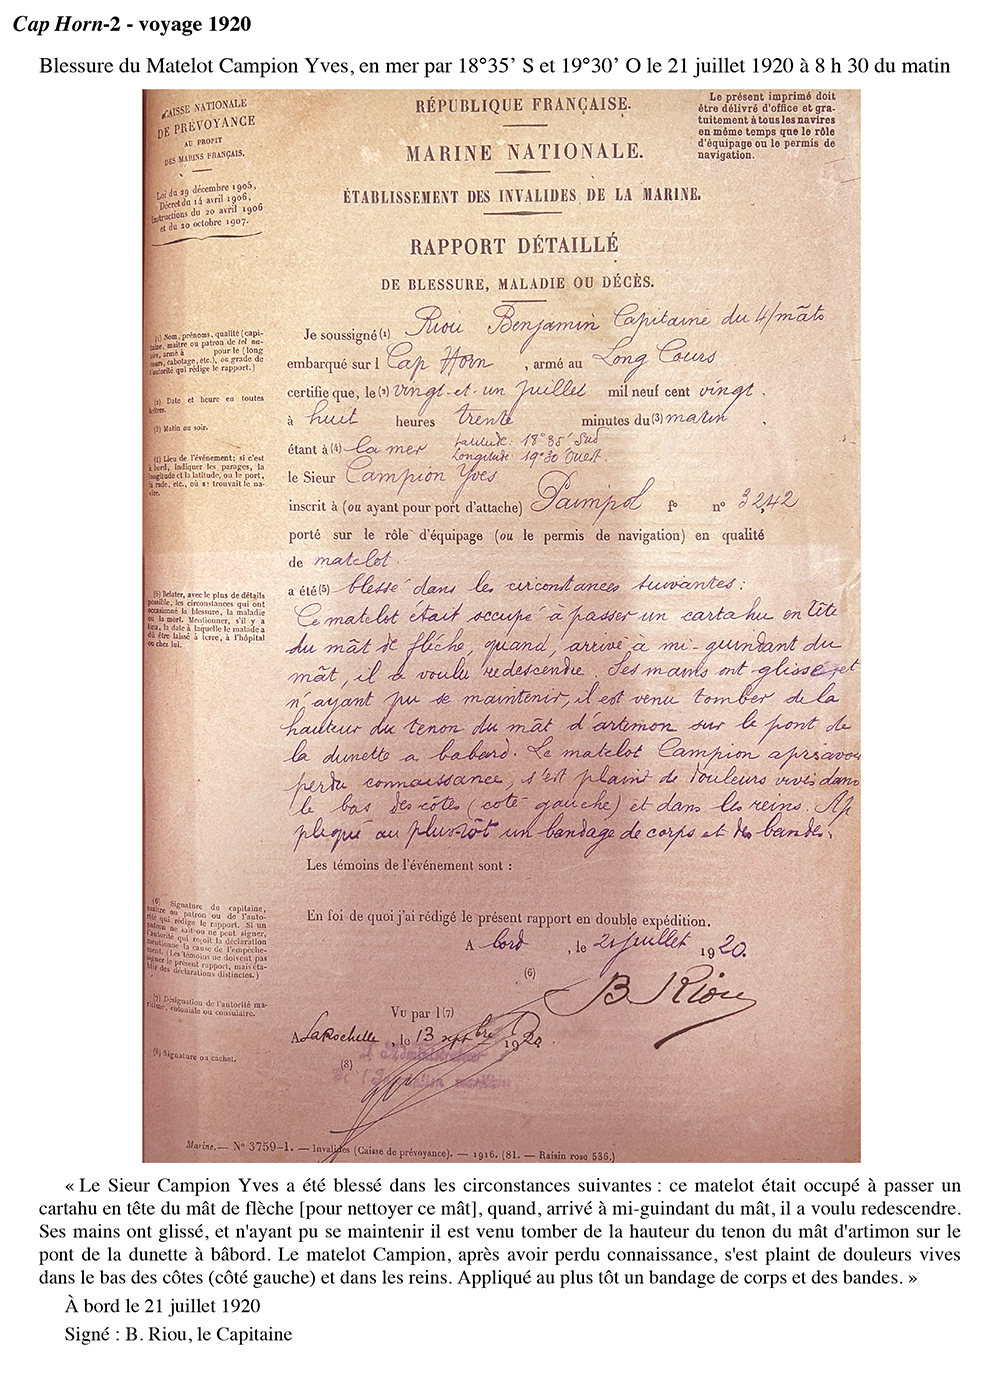 Cap Horn-2 - voyage 1920
Blessure du Matelot Campion Yves, en mer par 18°35’ S et 19°30’ O le 21 juillet 1920 à 8 h 30 du matin
CAISSE NATIONALE
DE PRÉVOYANCE
AU PROFIT
DES MARINS FRANÇAIS.
Loi du 29 décembre 1905,
Décret du 14 avril 1906,
Instructions du 20 avril 1906
et du 20 octobre 1907.
RÉPUBLIQUE FRANÇAISE.
MARINE NATIONALE.
ÉTABLISSEMENT DES INVALIDES DE LA MARINE.
RAPPORT DÉTAILLÉ
DE BLESSURE, MALADIE OU DÉCÈS.
Le présent imprimé doit
être délivré d'office et gra-
tuitement à tous les navires
en même temps que le rôle
d'équipage ou le permis de
navigation.
(1) Nom, prénoms, qualité (capi-
taine, maître ou patron de tel na-
vire, armé à pour le (long
cours, cabotage, etc.), ou grade de
l'autorité qui rédige le rapport.)
(2) Date et heure en toutes
lettres.
(3) Matin ou soir.
(4) Lieu de l'événement; si c'est
à bord, indiquer les parages, la
longitude et la latitude, ou le port,
la rade, etc., où se trouvait le na-
vire.
(5) Relater, avec le plus de détails
possible, les circonstances qui ont
occasionné la blessure, la maladie
ou la mort. Mentionner, s'il y a
lieu, la date à laquelle le malade a
dû être laissé à terre, à l'hôpital
ou chez lui.
(6) Signature du capitaine,
maître ou patron ou de l'auto-
rité qui rédige le rapport. Si un
patron ne sait ou ne peut signer,
l'autorité qui reçoit la déclaration
mentionne la cause de l'empêche-
ment. (Les témoins ne doivent pas
signer le présent rapport, mais éta-
blir des déclarations distinctes.)
(7) Désignation de l'autorité ma-
ritime, coloniale ou consulaire.
(8) Signature ou cachet.
Je soussigné (1) Riou Benjamin Capitaine du 4/mâts
embarqué sur l Cap Horn , armé au Long Cours
certifie que, le (2) vingt-et-un juillet mil neuf cent vingt .
à huit heures trente minutes du (3) matin
étant à (4) la mer Latitude: 18°35' Sud
Longitude: 19°30 Ouest.
le Sieur Campion Yves
inscrit à (ou ayant pour port d'attache) Paimpol fo n° 3242
porté sur le rôle d'équipage (ou le permis de navigation) en qualité
de matelot.
a été (5) blessé dans les circonstances suivantes :
Ce matelot était occupé à passer un cartahu en tête
du mât de flèche, quand, arrivé à mi-guindant du
mât, il a voulu redescendre. Ses mains ont glissé et
n'ayant pu se maintenir, il est venu tomber de la
hauteur du tenon du mât d'artimon sur le pont de
la dunette a babord. Le matelot Campion après avoir
perdu connaissance, s'est plaint de douleurs vives dans
le bas des côtes (coté gauche) et dans les reins. Ap
pliqué au plus tôt un bandage de corps et des bandes.
Les témoins de l'événement sont :
En foi de quoi j'ai rédigé le présent rapport en double expédition.
A bord , le 21 juillet 1920.
(6)
B. Riou
Vu par l (7)
A LaRochelle , le 13 septbre 1920.
L'Administrateur
de l'Inscription maritime
(8)
Marine. — N° 3759-1. — Invalides (Caisse de prévoyance). — 1916. (81. — Raisin rose 536.)
« Le Sieur Campion Yves a été blessé dans les circonstances suivantes : ce matelot était occupé à passer un
cartahu en tête du mât de flèche [pour nettoyer ce mât], quand, arrivé à mi-guindant du mât, il a voulu redescendre.
Ses mains ont glissé, et n'ayant pu se maintenir il est venu tomber de la hauteur du tenon du mât d'artimon sur le
pont de la dunette à bâbord. Le matelot Campion, après avoir perdu connaissance, s'est plaint de douleurs vives
dans le bas des côtes (côté gauche) et dans les reins. Appliqué au plus tôt un bandage de corps et des bandes. »
À bord le 21 juillet 1920
Signé : B. Riou, le Capitaine